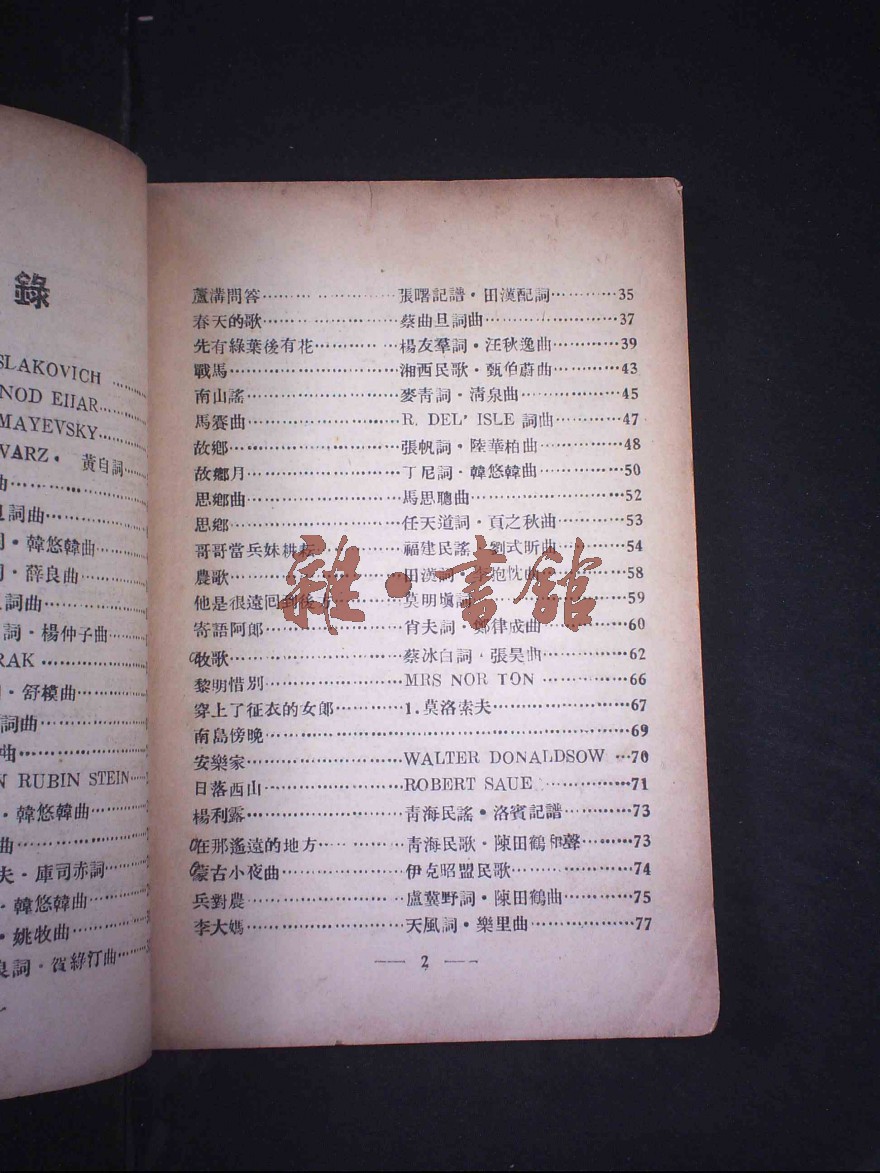 錄
SLAKOVICH ………
NOD EIJAR………
MAYEVSKY………
VARZ・ 黃自詞……
曲………………
詞曲…………
・韓悠韓曲………
・薛良曲………
詞曲…………
詞・楊仲子曲……
RAK …………
・舒模曲………
詞曲…………
曲………………
N RUBIN STEIN……
・韓悠韓曲………
曲………………
夫・庫司赤詞……
・韓悠韓曲………
・姚牧曲………
良詞・賀綠汀曲……
蘆溝問答………………張曙記譜・田漢配詞…………35
春天的歌………………蔡曲旦詞曲…………37
先有綠葉後有花…………楊友羣詞・汪秋逸曲…………39
戰馬………………湘西民歌・甄伯蔚曲…………43
南山謠………………麥青詞・清泉曲…………45
馬賽曲………………R. DEL' ISLE 詞曲…………47
故鄉………………張帆詞・陸華柏曲…………48
故鄉月………………丁尼詞・韓悠韓曲…………50
思鄉曲………………馬思聰曲…………52
思鄉………………任天道詞・頁之秋曲…………53
哥哥當兵妹耕耘…………福建民謠・劉式昕曲…………54
農歌………………田漢詞・李抱忱曲…………58
他是很遠回到後方…………莫明詞…………59
寄語阿郎………………肖夫詞・鄭律成曲…………60
牧歌………………蔡冰白詞・張昊曲…………62
黎明惜別………………MRS NOR TON…………66
穿上了征衣的女郎…………1.莫洛索夫…………67
南島傍晚………………69
安樂家………………WALTER DONALDSOW…70
日落西山………………ROBERT SAUE…………71
楊利露………………青海民謠・洛賓記譜…………73
在那遙遠的地方…………青海民歌・陳田鶴和聲………73
蒙古小夜曲………………伊克昭盟民歌…………74
兵對農………………盧冀野詞・陳田鶴曲…………75
李大媽………………天風詞・樂里曲…………77
— 2 —
雜・書館